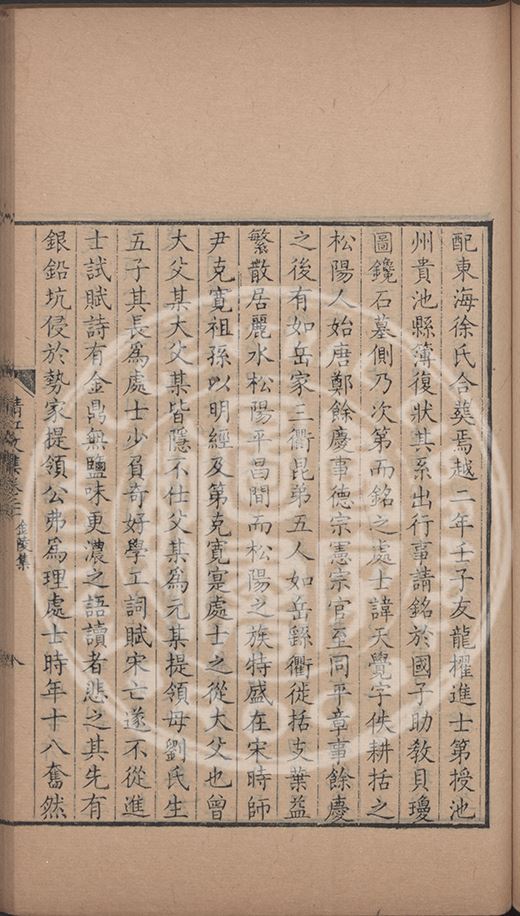 配東海徐氏合葬焉越二年壬子友龍擢進士第授池
州貴池縣簿復狀其系出行事請銘於國子助教貝瓊
圖鑱石墓側乃次第而銘之處士諱天覺字佚耕括之
松陽人始唐鄭餘慶事德宗憲宗官至同平章事餘慶
之後有如岳家三衢昆弟五人如岳繇衢徙括支葉益
繁散居麗水松陽平昌間而松陽之族特盛在宋時師
尹克寛祖孫以明經及第克寛寔處士之從大父也曾
大父某大父某皆隱不仕父某爲元某提領母劉氏生
五子其長爲處士少負奇好學工詞賦宋亡遂不從進
士試賦詩有金鼎無鹽味更濃之語讀者悲之其先有
銀鉛坑侵於勢家提領公弗爲理處士時年十八奮然
清江文集卷二 金陵集
八